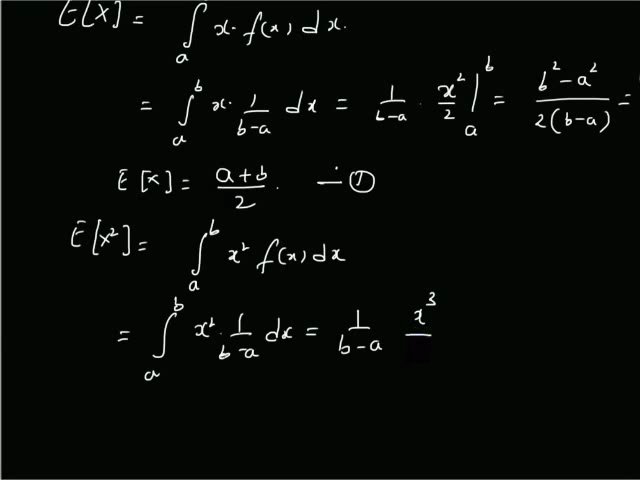 E[X] = ∫ₐ x· f(x) dx.
= ∫ₐᵇ x· 1/(b-a) dx = 1/(b-a) · x²/2 |ₐᵇ = (b²-a²)/(2(b-a)) =
E[X] = (a+b)/2. — ①
E[X²] = ∫ₐᵇ x² f(x) dx
= ∫ₐᵇ x² · 1/(b-a) dx = 1/(b-a) x³/